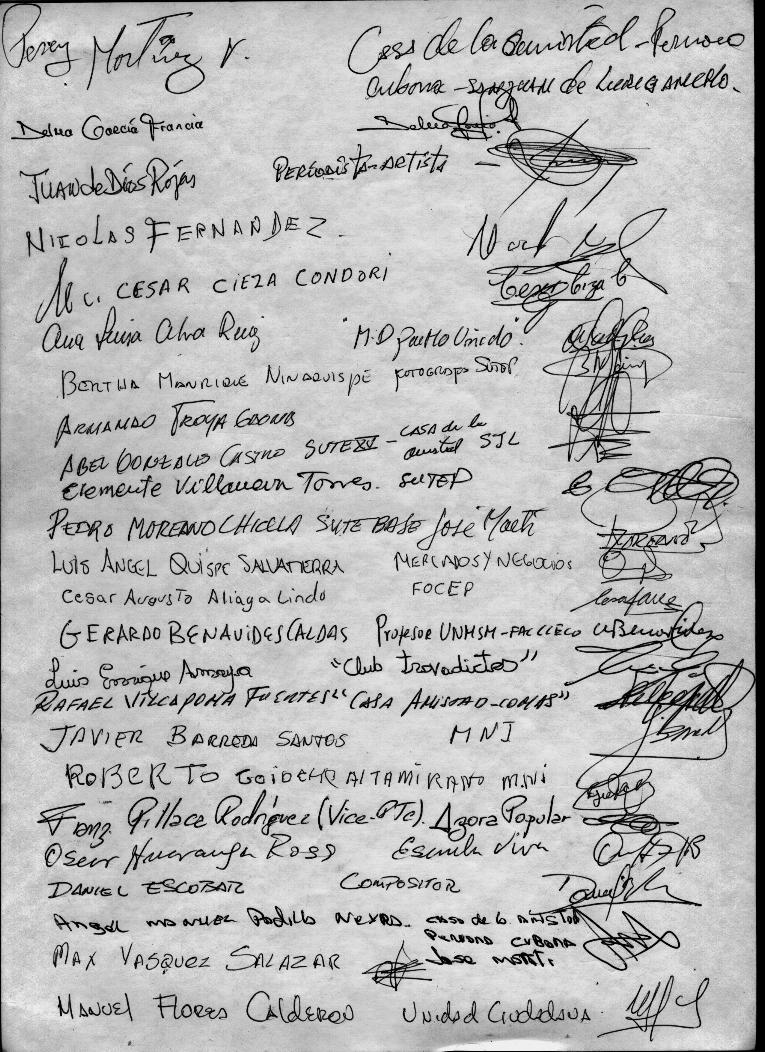 Percy Martínez V. Casa de la Amistad - Peruano
Cubana - San Juan de Lurigancho.
Delma García Francia
Juan de Dios Rojas PERIODISTA-ARTISTA -
NICOLAS FERNANDEZ.
CESAR CIEZA CONDORI
Ana Luisa Alva Ruiz "M.D pueblo Unido".
BERTHA MANRIQUE NINAQUISPE SUTEP
ARMANDO TROYA
ABEL GONZALO CASTRO SUTE XVI - CASA de la
amistad SJL
Clemente Villanueva Torres. SUTEP
PEDRO MOREANO CHICLLA SUTE BASE José Martí
LUIS ANGEL QUISPE SALVATIERRA MERCADOS Y NEGOCIOS
Cesar Augusto Aliaga Lindo FOCEP
GERARDO BENAVIDES CALDAS Profesor UNMSM-
Luis Enrique Amaya "Club trovadictos"
RAFAEL VILLAPOMA FUENTES "CASA AMISTAD-COMAS"
JAVIER BARREDA SANTOS MNI
ROBERTO ALTAMIRANO MNI
Franz Rodríguez (Vice-Pte). Agora Popular
Oscar Huaranga Ross Escuela Viva
DANIEL ESCOBAR COMPOSITOR
Angel MANUEL Padilla Neyra. casa de la AMISTAD
PERUANO CUBANA
Jose Marti
MAX VASQUEZ SALAZAR
MANUEL FLORES CALDERON UNIDAD CIUDADANA